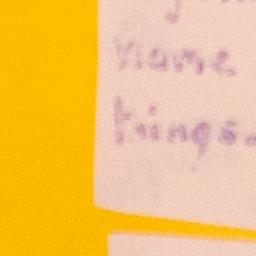 name
things.